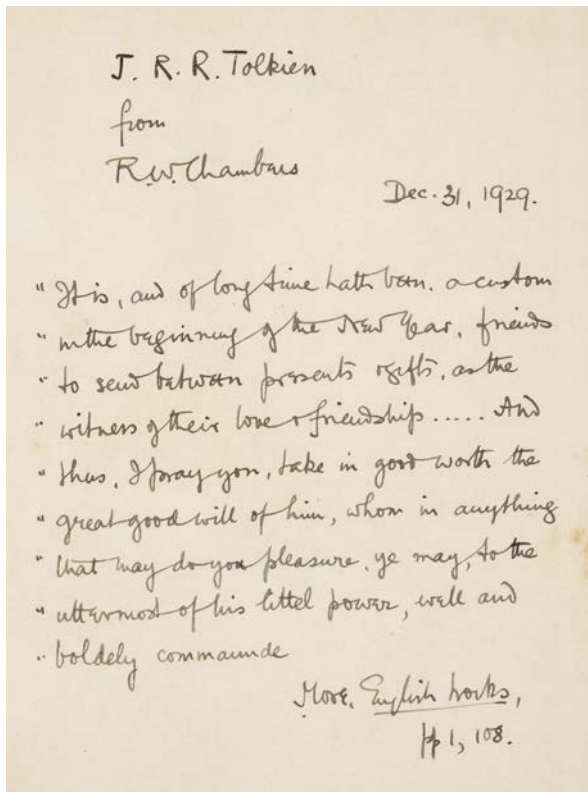 J. R. R. Tolkien
from
R.W. Chambers
Dec. 31, 1929.
" It is, and of long time hath been, a custom
" in the beginning of the New Year, friends
" to send between presents & gifts, as the
" witness of their love & friendship ..... And
" thus, I pray you, take in good worth the
" great good will of him, whom in anything
" that may do you pleasure, ye may, to the
" uttermost of his littel power, well and
" boldely commaunde
More, English Works,
pp 1, 108.